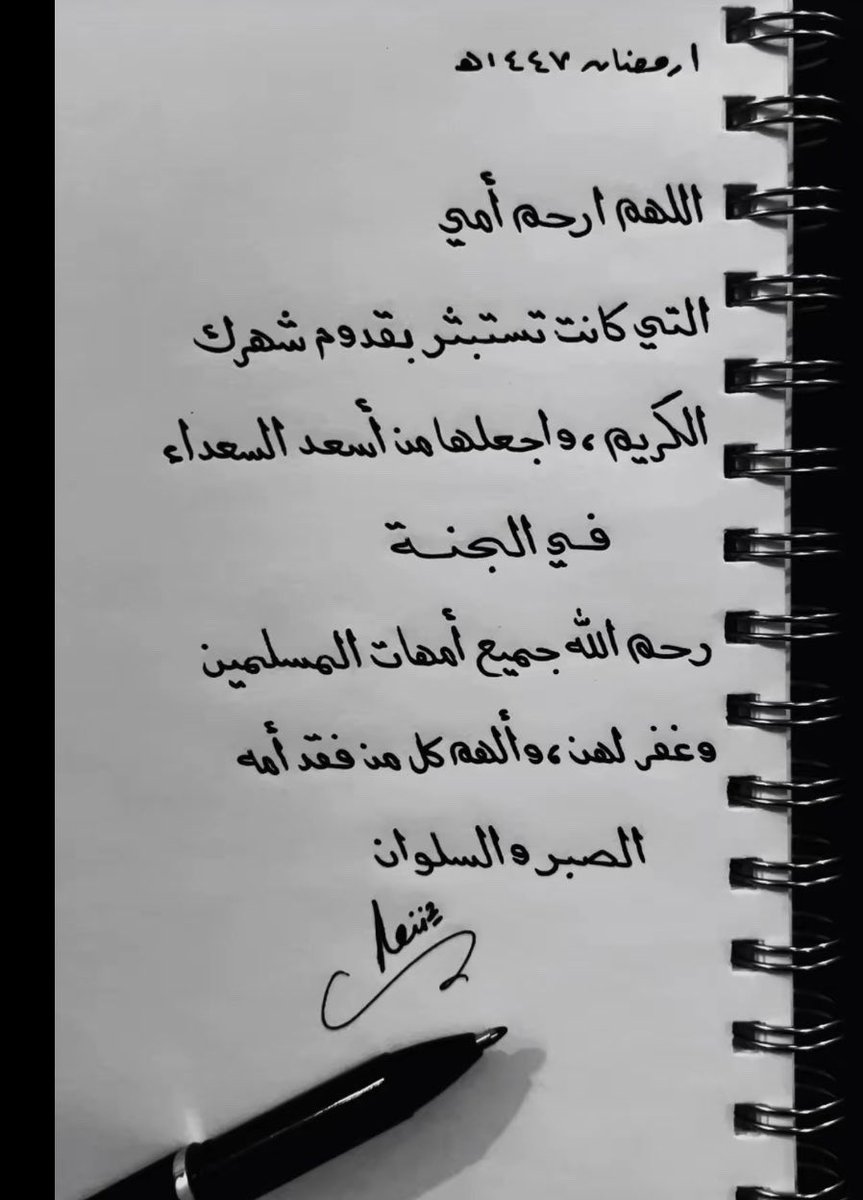 ١ رمضان ١٤٤٧هـ
اللهم ارحم أمي
التي كانت تستبشر بقدوم شهرك
الكريم، واجعلها من أسعد السعداء
في الجنة
رحم الله جميع أمهات المسلمين
وغفر لهن، وألهم كل من فقد أمه
الصبر والسلوان